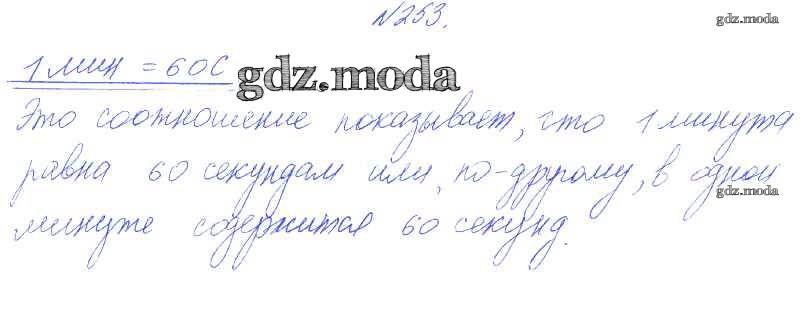 №253.
gdz.moda
1 мин = 60 С
gdz.moda
Это соотношение показывает, что 1 минута
равна 60 секундам или, по-другому, в одной
gdz.moda
минуте содержится 60 секунд.
gdz.moda